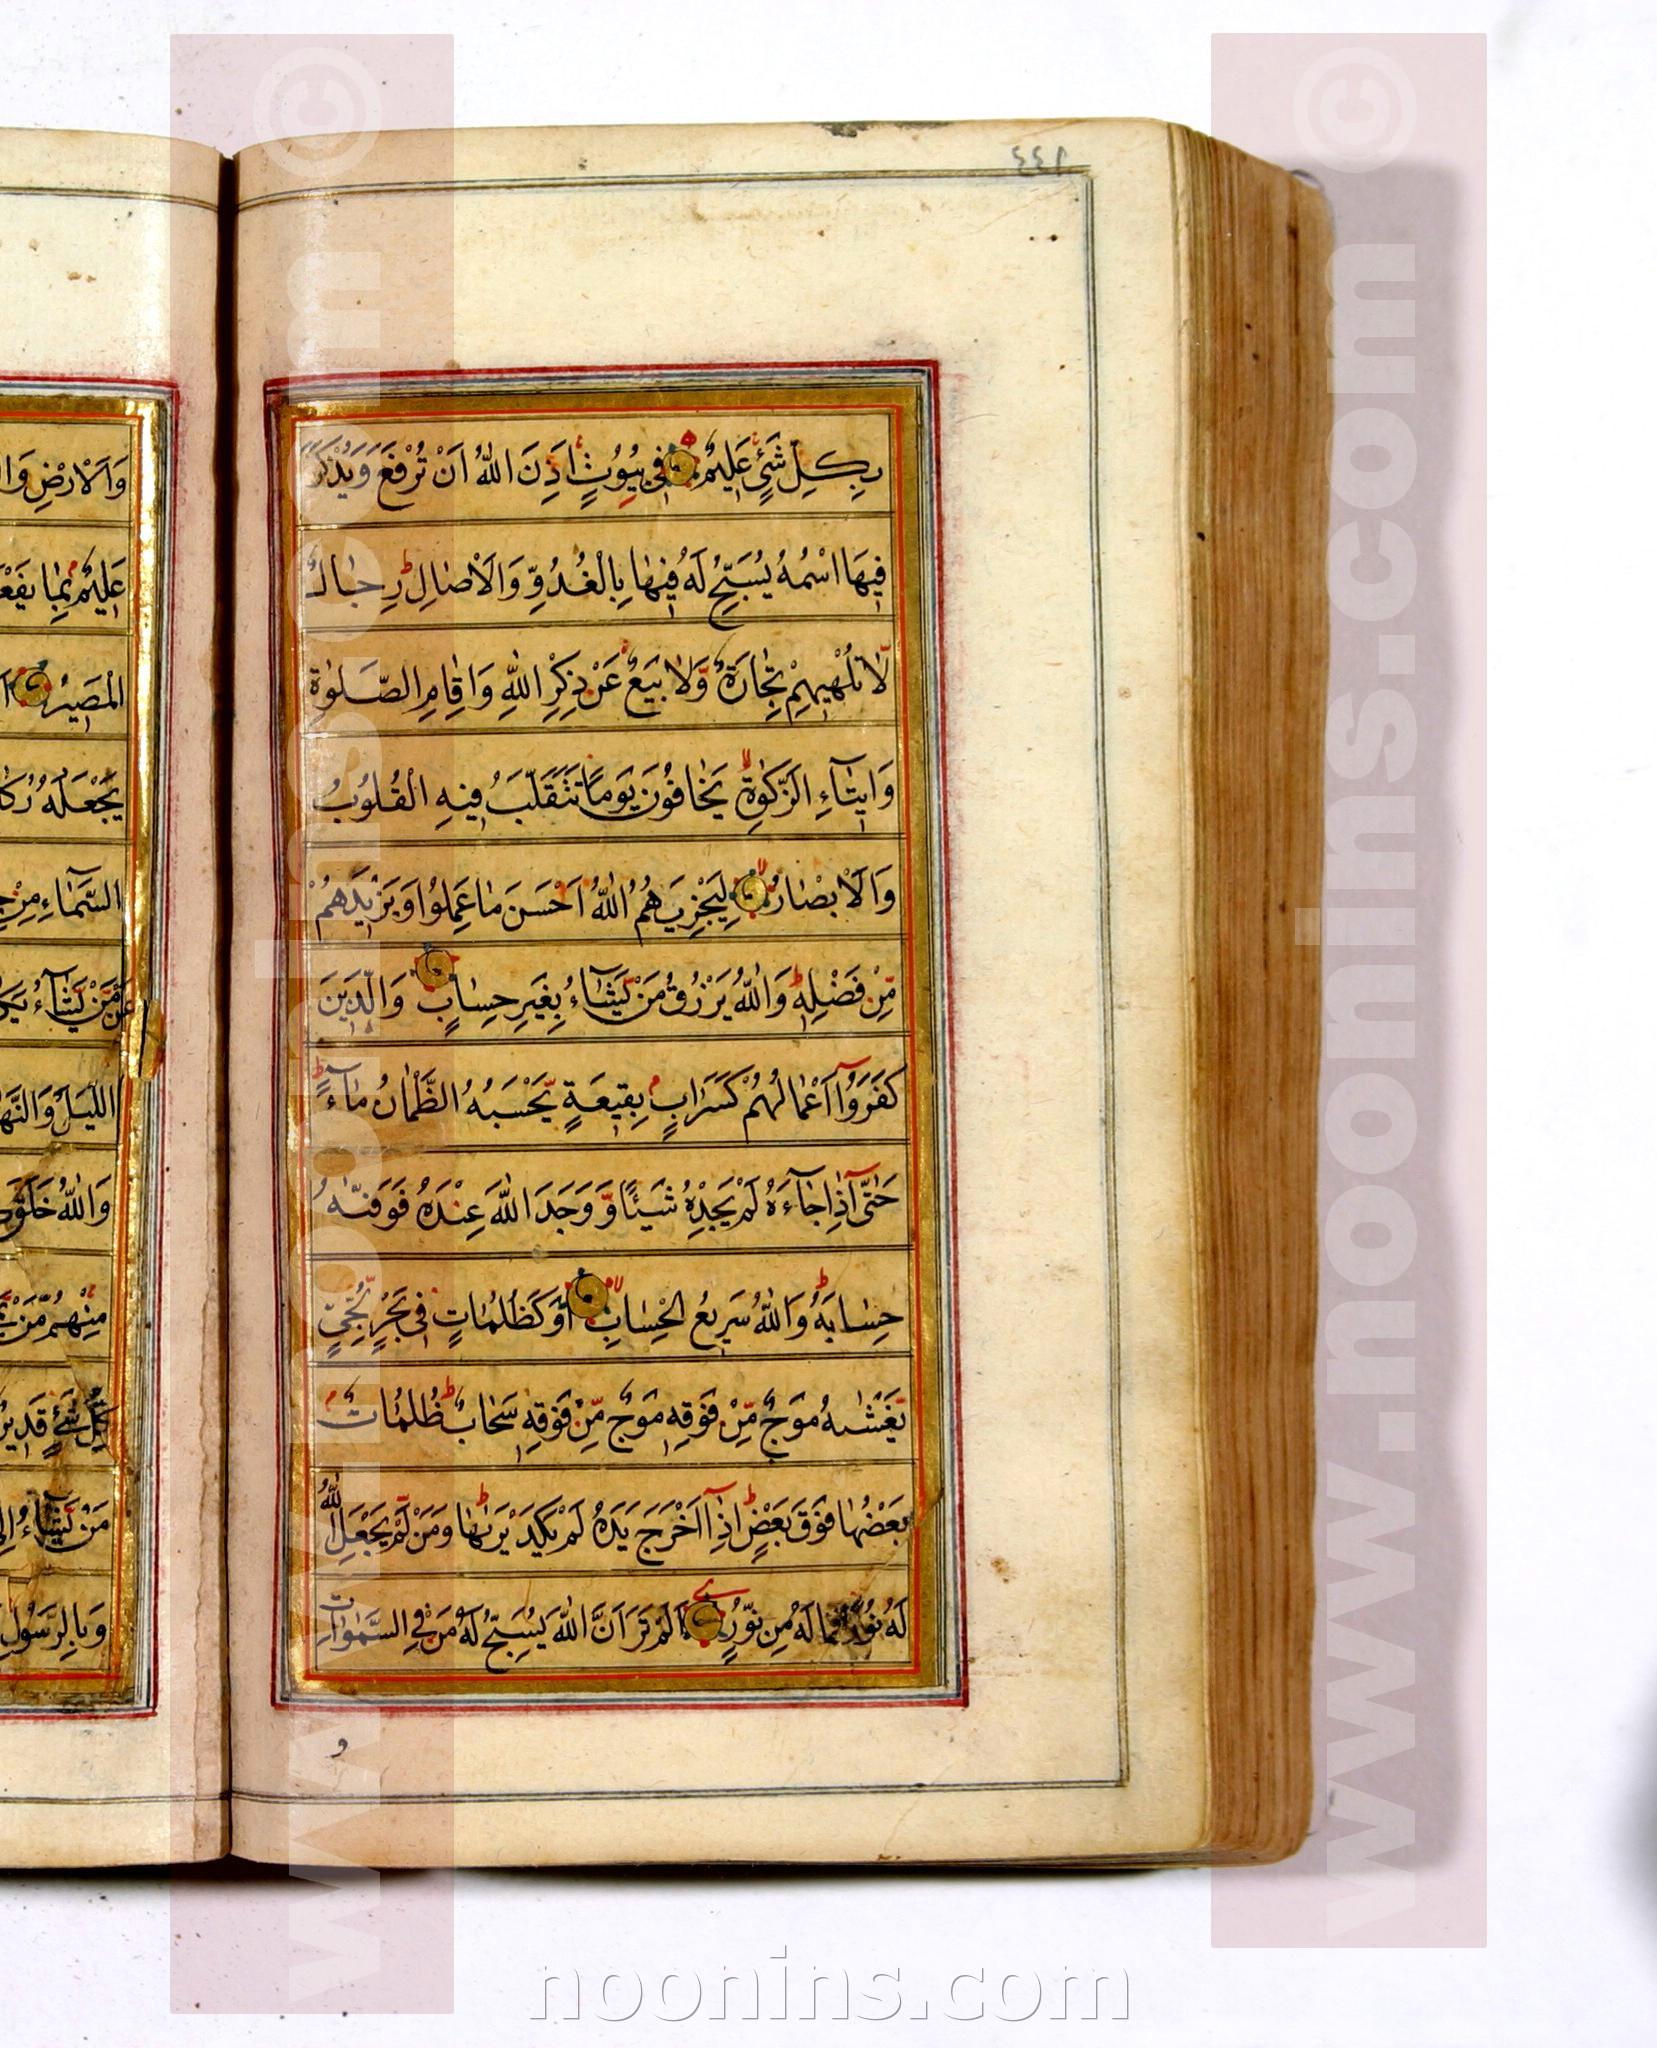 ١٤٤
بِكُلِّ شَيْءٍ عَلِيمٌ فِي بُيُوتٍ اَذِنَ اللّٰهُ اَنْ تُرْفَعَ وَيُذْكَرَ
فِيهَا اسْمُهُ يُسَبِّحُ لَهُ فِيهَا بِالْغُدُوِّ وَالْاٰصَالِ رِجَالٌ
لَّا تُلْهِيهِمْ تِجَارَةٌ وَّلَا بَيْعٌ عَنْ ذِكْرِ اللّٰهِ وَاِقَامِ الصَّلٰوةِ
وَاِيتَآءِ الزَّكٰوةِ يَخَافُونَ يَوْمًا تَتَقَلَّبُ فِيهِ الْقُلُوبُ
وَالْاَبْصَارُ لِيَجْزِيَهُمُ اللّٰهُ اَحْسَنَ مَا عَمِلُوا وَيَزِيدَهُمْ
مِّنْ فَضْلِهِ وَاللّٰهُ يَرْزُقُ مَنْ يَّشَآءُ بِغَيْرِ حِسَابٍ وَالَّذِينَ
كَفَرُوٓا اَعْمَالُهُمْ كَسَرَابٍ بِقِيعَةٍ يَّحْسَبُهُ الظَّمْاٰنُ مَآءً
حَتّٰٓى اِذَا جَآءَهُ لَمْ يَجِدْهُ شَيْئًا وَّوَجَدَ اللّٰهَ عِنْدَهُ فَوَفّٰىهُ
حِسَابَهُ وَاللّٰهُ سَرِيعُ الْحِسَابِ اَوْ كَظُلُمَاتٍ فِي بَحْرٍ لُّجِّيٍّ
يَّغْشٰىهُ مَوْجٌ مِّنْ فَوْقِهِ مَوْجٌ مِّنْ فَوْقِهِ سَحَابٌ ظُلُمَاتٌ
بَعْضُهَا فَوْقَ بَعْضٍ اِذَآ اَخْرَجَ يَدَهُ لَمْ يَكَدْ يَرٰىهَا وَمَنْ لَّمْ يَجْعَلِ اللّٰهُ
لَهُ نُورًا فَمَا لَهُ مِنْ نُّورٍ اَلَمْ تَرَ اَنَّ اللّٰهَ يُسَبِّحُ لَهُ مَنْ فِي السَّمٰوَاتِ
و
وَالْاَرْضِ
عَلِيمٌ بِمَا
الْمَصِيرُ
يَجْعَلُهُ
السَّمَآءِ مِنْ
عَنْ مَّنْ يَّشَآءُ
اللَّيْلَ وَالنَّهَا
وَاللّٰهُ خَلَقَ
مِنْهُمْ مَّنْ
كُلِّ شَيْءٍ قَدِيرٌ
مَنْ يَّشَآءُ
وَبِالرَّسُولِ
www.noonins.com ©
www.noonins.com ©
noonins.com